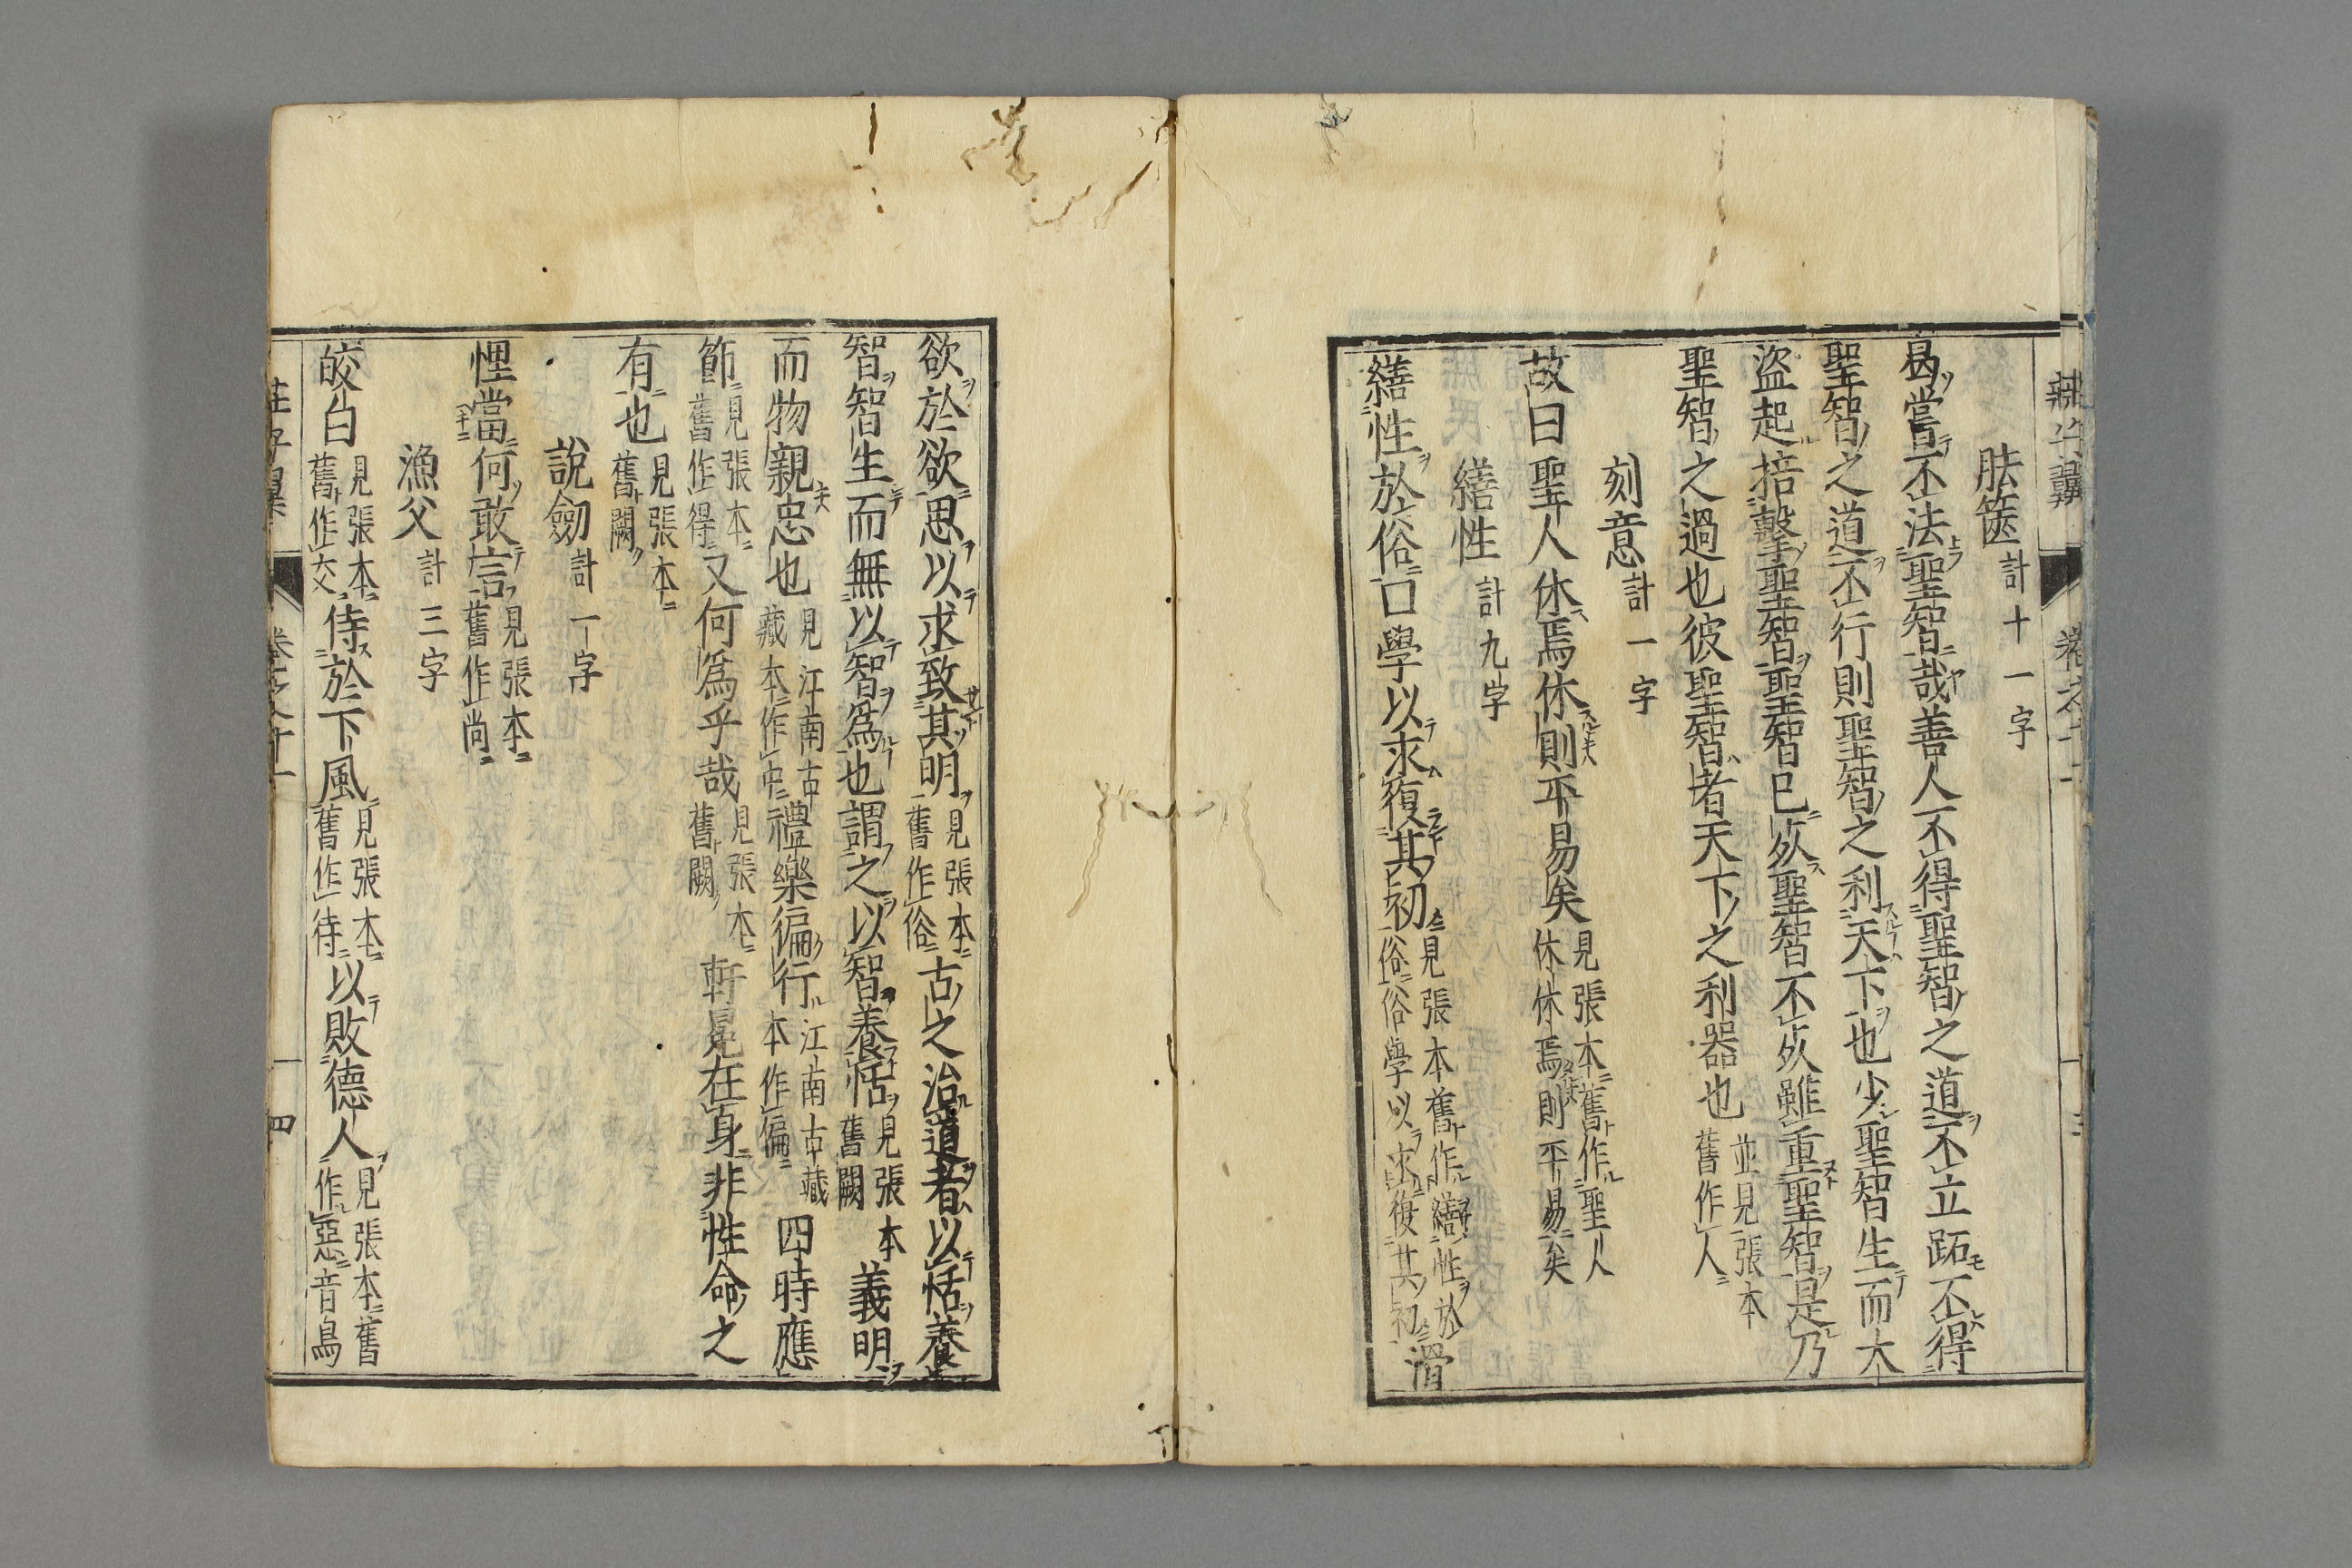 胠篋計十一字
曷嘗不法聖智哉善人不得聖智之道不立跖不得
聖智之道不行則聖智之利天下也少聖智生而大
盜起掊擊聖智聖智已死聖智不死雖重聖智是乃
聖智之過也彼聖智者天下之利器也並見張本舊作人
刻意計一字
故曰聖人休焉休則平易矣見張本舊作聖人休休焉則平易矣
繕性計九字
繕性於俗口學以求復其初見張本舊作繕性於俗俗學以求復其初滑
欲於欲思以求致其明見張本舊作俗古之治道者以恬養
智智生而無以智爲也謂之以智養恬見張本舊闕義明
而物親忠也見江南古藏本作中禮樂徧行江南古藏本作偏四時應
節見張本舊作得又何爲乎哉見張本舊闕軒冕在身非性命之
有也見張本舊闕
說劒計一字
悝當何敢言見張本舊作尚
漁父計三字
皎白見張本舊作交侍於下風見張本舊作待以敗德人見張本舊作惡音烏